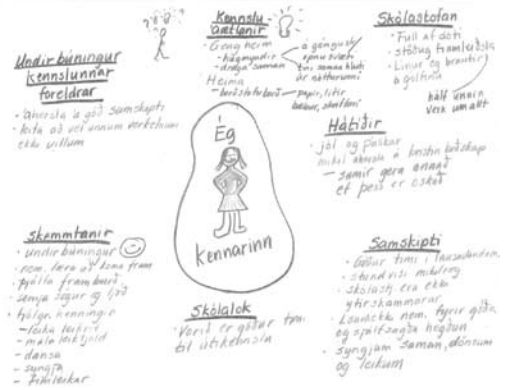 Undirbúningur
kennslunnar
foreldrar
· áhersla á góð samskipti
· leita að vel unnum verkefnum
ekki villum
Kennslu
áætlanir
· Geng heim
- hugmyndir
- draga saman
· Heima
- borðstofuborð
á göngustíg
opnu svæði
saman hluti
úr náttúrunni
papír, litir
bækur, skatlar
Skólastofan
· Full af dóti
· stöðug framleiðsla
· Línur og brautir
á gólfinu
hálf unnin
verk um allt
Hátíðir
· jól og páskar
mikil áhersla á kristin boðskap
- samir gera annað
ef þess er óskað
Ég
kennarinn
Skemmtanir
· undirbúningur
· nem. læra að koma fram
· þjálfa framburð
· semja sögur og ljóð
- leika leikrit
- mála leiktjöld
- dansa
- syngja
- fimleikar
Skólalok
· Vorið er góður tími
til útikennslu
Samskipti
· Góður tími í
· stundvísi mikilvæg
· skólastj. era ekki
yfirskammarar
nem. fyrir góða
og sjálfsagða hegðun
· syngjum saman, dönsum
og leikum